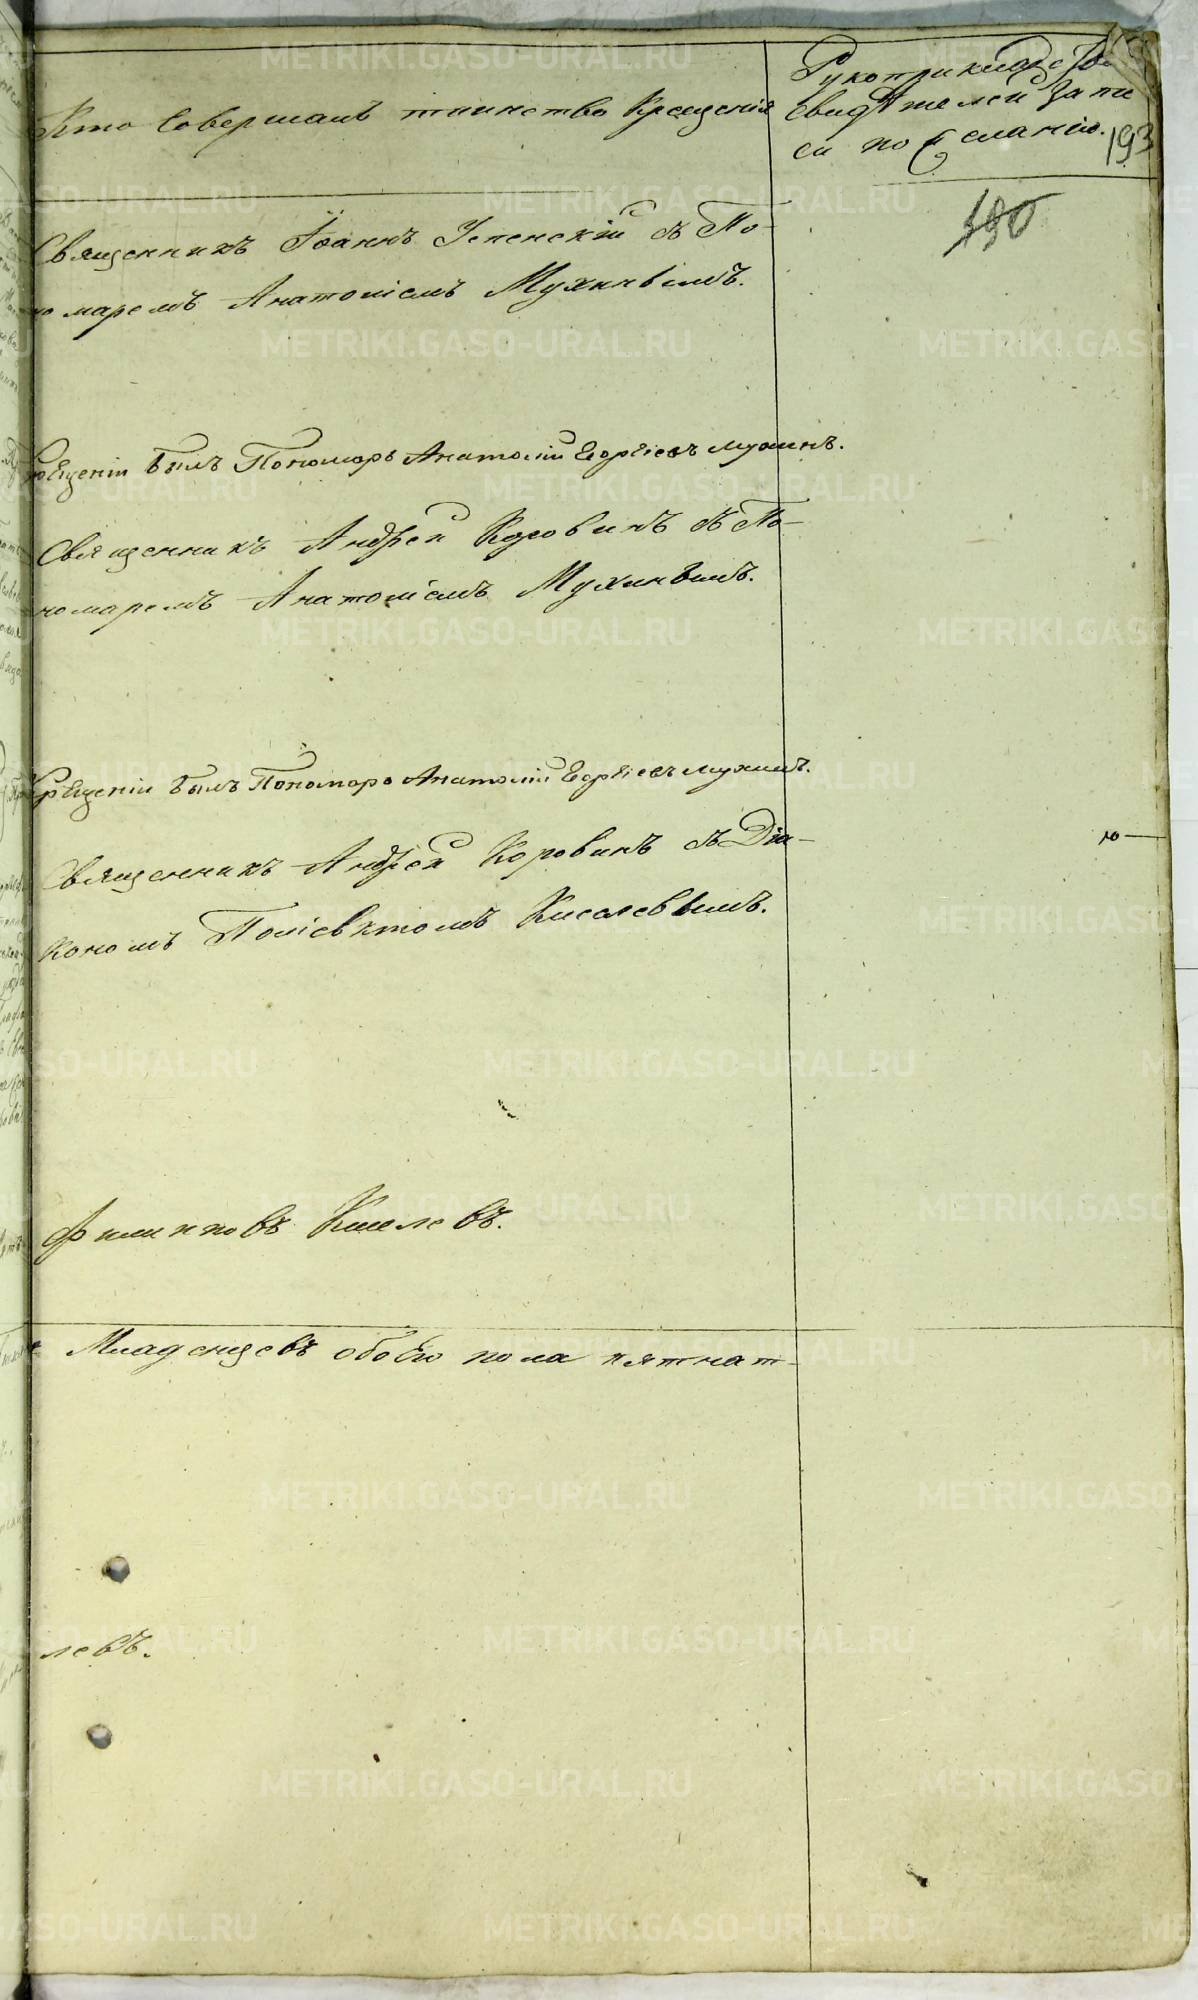 Кто Совершалъ таинство Крещенія
Рукоприкладство
свидѣтелей запи
си по желанію.
193
190
Священникъ Іоаннъ Успенскій съ По-
номаремъ Анатоліемъ Мухинымъ.
крещеніи былъ Пономарь Анатолій Георгіевъ Мухинъ.
Священникъ Андрей Коровинъ съ По-
номаремъ Анатоліемъ Мухинымъ.
крещеніи былъ Пономарь Анатолій Георгіевъ Мухинъ.
Священникъ Андрей Коровинъ съ Діа-
кономъ Поліевктомъ Киселевымъ.
ю—
Филипповъ Киселевъ.
Младенцевъ обоего пола пятнат-
левъ.
METRIKI.GASO-URAL.RU